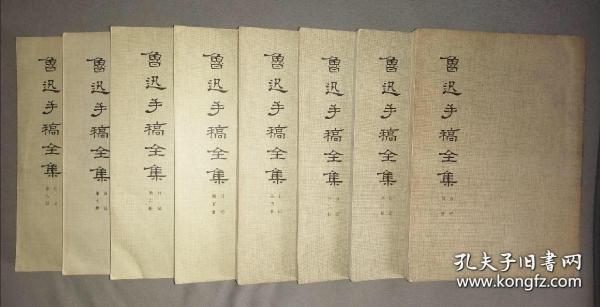 魯迅手稿全集
魯迅手稿全集
魯迅手稿全集
魯迅手稿全集
魯迅手稿全集
魯迅手稿全集
魯迅手稿全集
魯迅手稿全集
孔夫子旧书网
www.kongfz.com